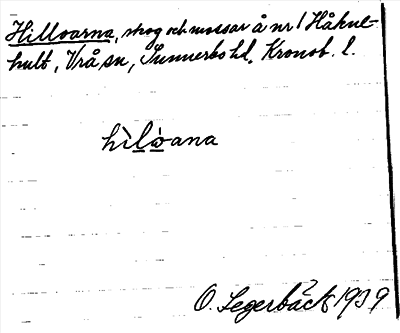 Hilloarna, skog och mossar å nr 1 Håkul-
hult, Vrå sn, Sunnerbo hd, Kronob. l.
hìlòana
O. Segerbäck 1939